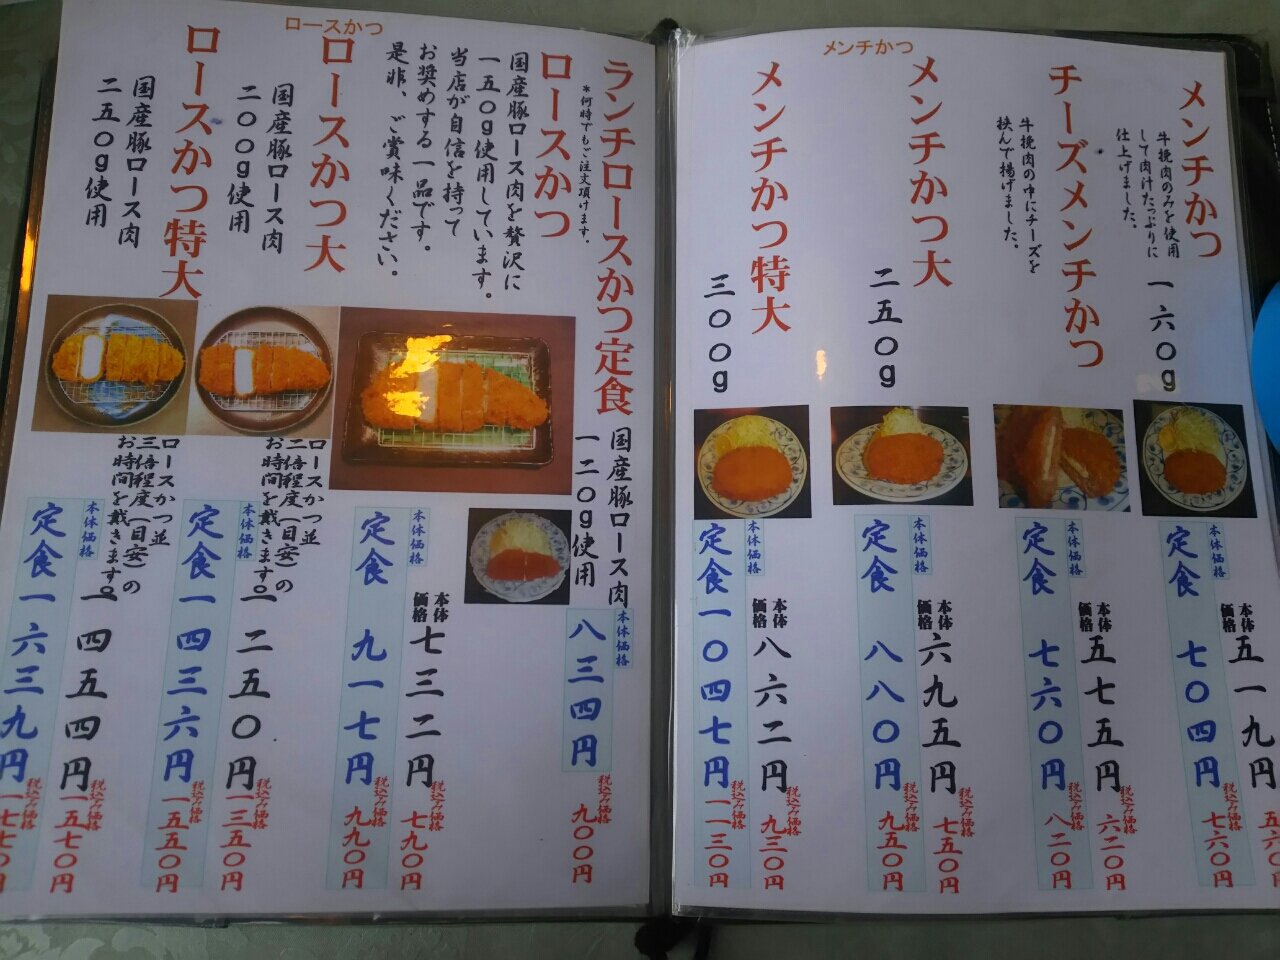 メンチかつ
メンチかつ
牛挽肉のみを使用
して肉汁たっぷりに
仕上げました。
一六〇g
本体価格
定食 七〇四円
税込み価格
七六〇円
本体
価格
五一九
五六〇円
チーズメンチかつ
牛挽肉の中にチーズを
挟んで揚げました。
本体価格
定食 七六〇円
税込み価格
八二〇円
本体
価格
五七五円
税込み価格
六二〇円
メンチかつ大
二五〇g
本体価格
定食 八八〇円
税込み価格
九五〇円
本体
価格
六九五円
税込み価格
七五〇円
メンチかつ特大
三〇〇g
本体価格
定食 一〇四七円
税込み価格
一一三〇円
本体
価格
八六二円
税込み価格
九三〇円
ロースかつ
ランチロースかつ定食
*何時でもご注文頂けます。
国産豚ロース肉
一二〇g使用
本体価格
八三四円
税込み価格
九〇〇円
ロースかつ
国産豚ロース肉を贅沢に
一五〇g使用しています。
当店が自信を持って
お奨めする一品です。
是非、ご賞味ください。
本体価格
定食 九一七円
税込み価格
九九〇円
本体
価格
七三二円
税込み価格
七九〇円
ロースかつ大
国産豚ロース肉
二〇〇g使用
ロースかつ並
二倍程度(目安)の
お時間を戴きます。
本体価格
定食 一四三六円
税込み価格
一五五〇円
一二五〇円
税込み価格
一三五〇円
ロースかつ特大
国産豚ロース肉
二五〇g使用
ロースかつ並
三倍程度(目安)の
お時間を戴きます。
本体価格
定食 一六三九円
税込み価格
一七七〇円
一四五四円
税込み価格
一五七〇円